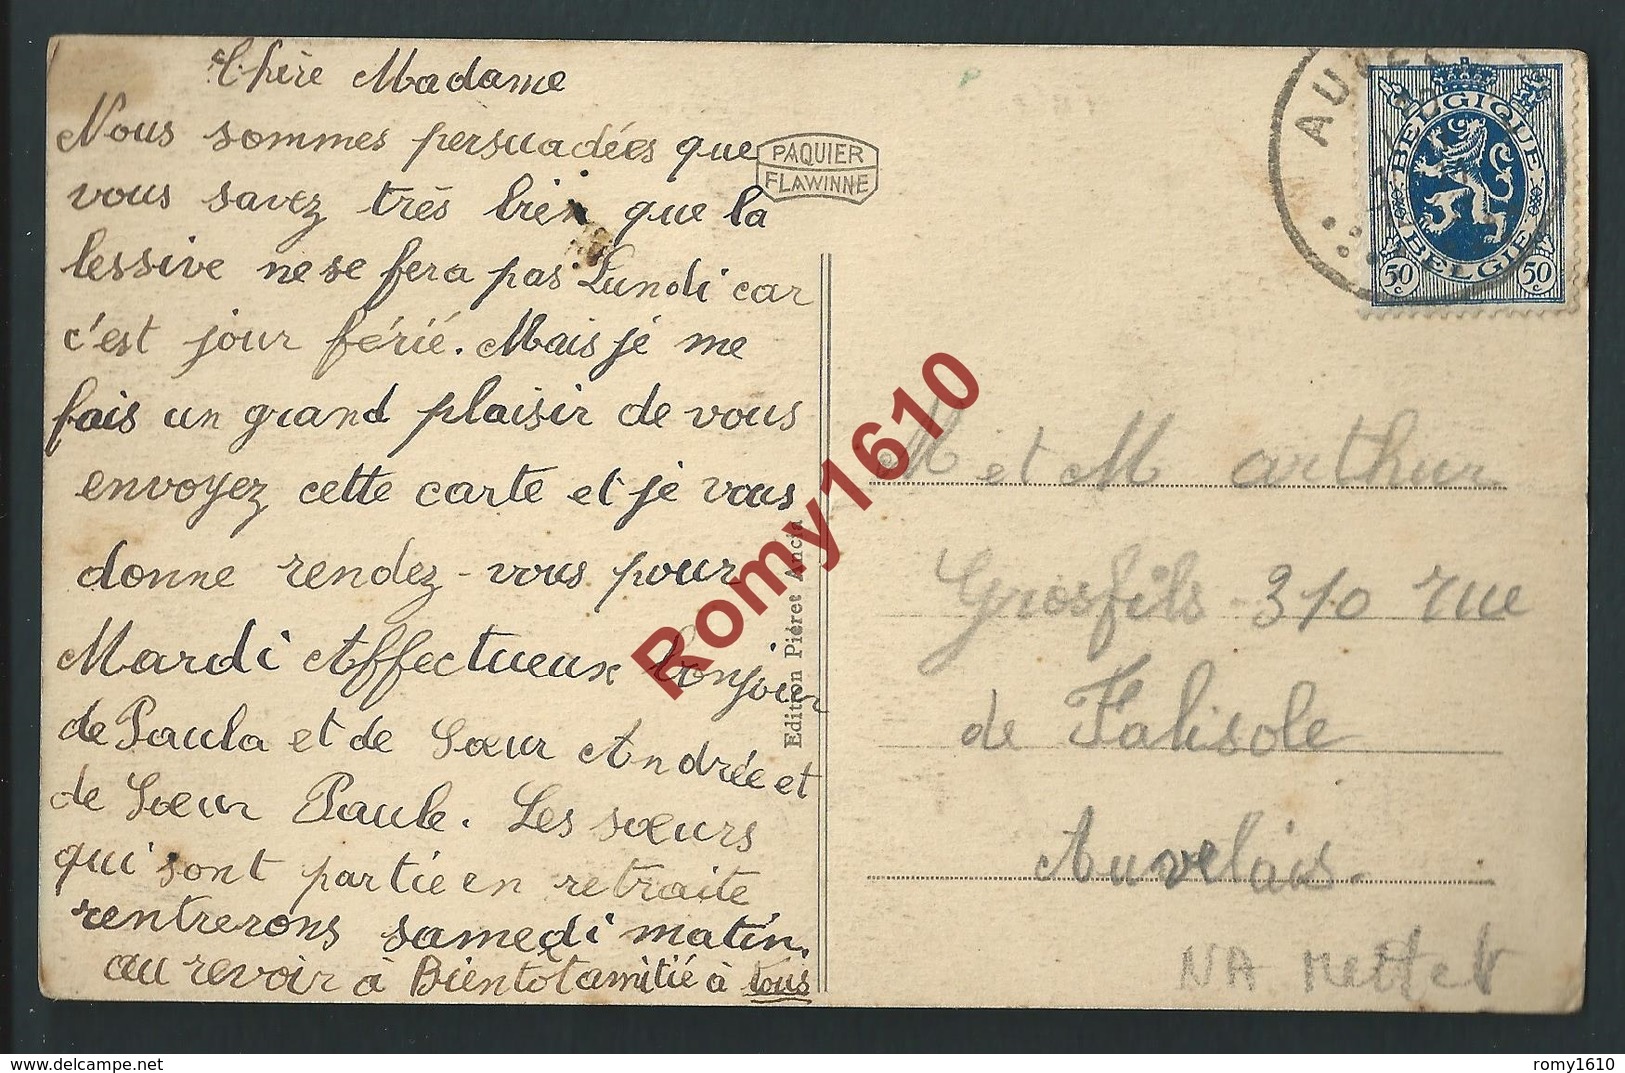 Chère Madame
Nous sommes persuadées que
vous savez très bien que la
lessive ne se fera pas Lundi car
c'est jour férié. Mais je me
fais un grand plaisir de vous
envoyez cette carte et je vous
donne rendez-vous pour
Mardi Affectueux bonjour
de Paula et de Sœur Andrée et
de Sœur Paule. Les sœurs
qui sont partie en retraite
rentrerons samedi matin.
au revoir à Bientôt amitié à tous
PAQUIER
FLAWINNE
Edition Piéret Ancia
BELGIQUE
BELGIË
50 c
50 c
M et M arthur
Grosfils 310 rue
de Falisole
Auvelais.
NA Mettet
Romy1610
delcampe.net
romy1610